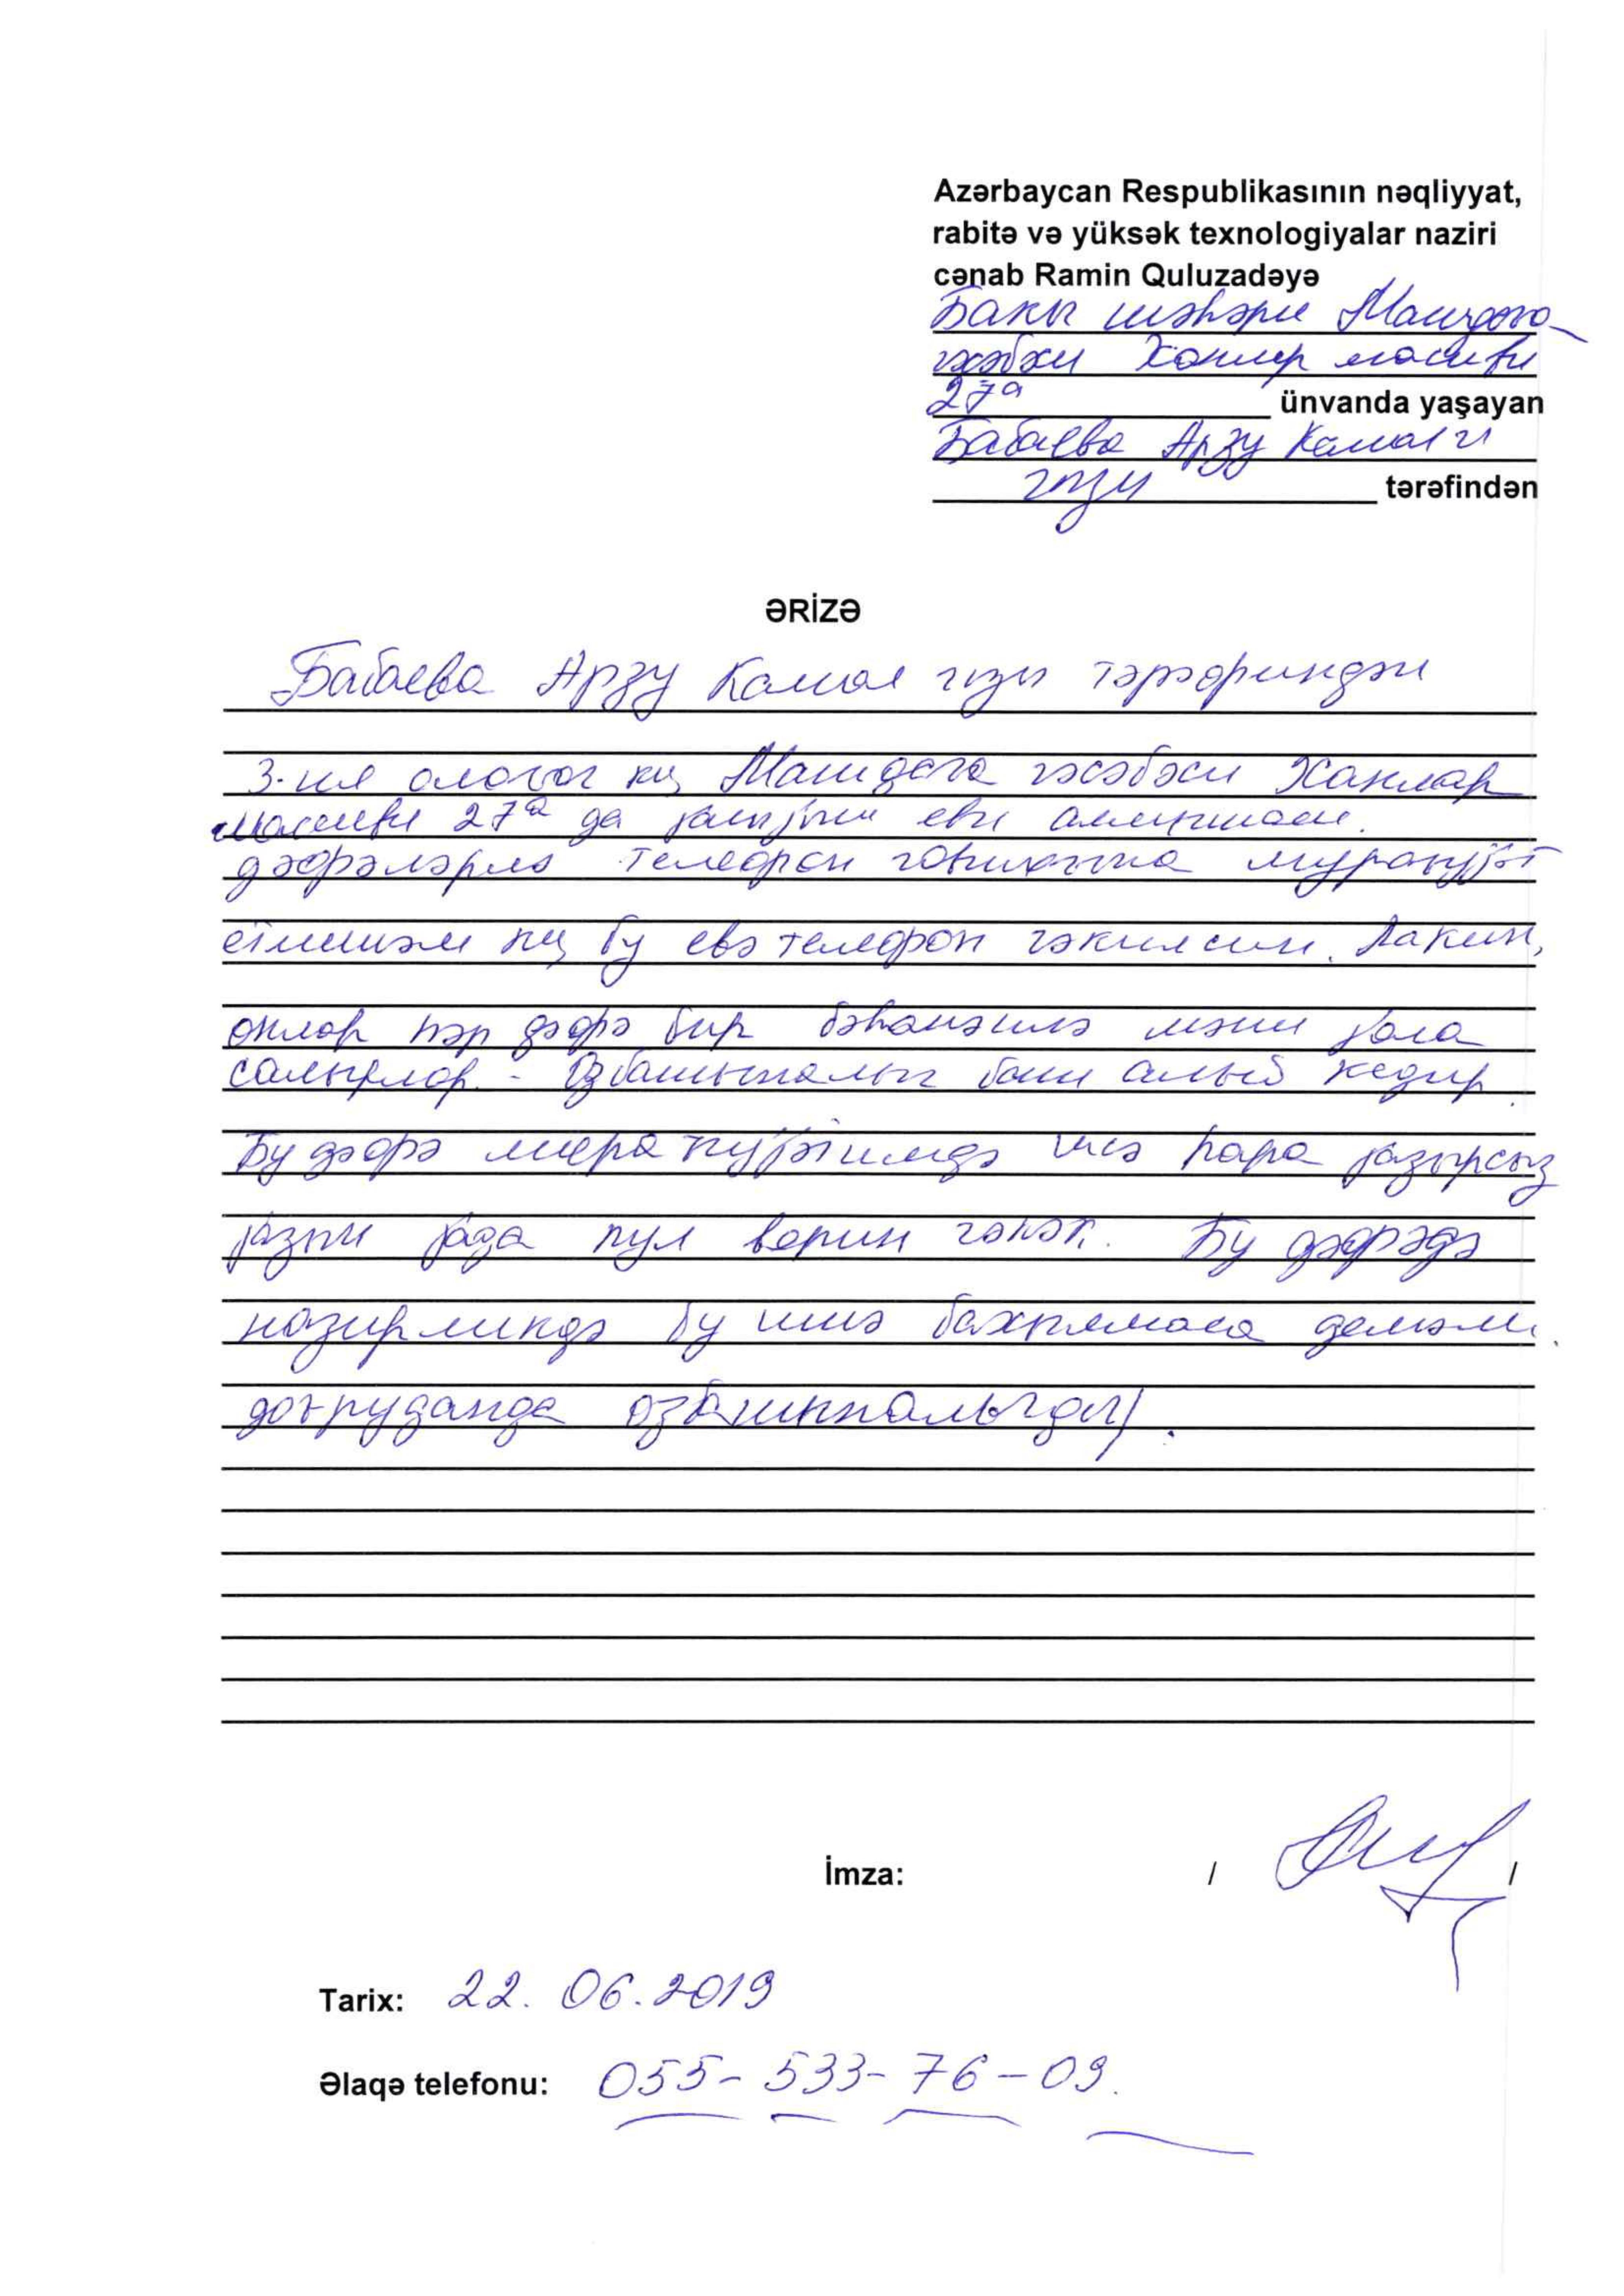 Azərbaycan Respublikasının nəqliyyat,
rabitə və yüksək texnologiyalar naziri
cənab Ramin Quluzadəyə
Бакы шәһәри Маштаға
гәсәбәси Ханлар масиви
27а ünvanda yaşayan
Бабаева Арзу Камал
гызы tərəfindən
ƏRİZƏ
Бабаева Арзу Камал гызы тәрәфиндән
3-ил олаҹаг ки, Маштаға гәсәбәси Ханлар
масиви 27а да еви алмышам.
дәфәләрлә телефон мураҹијәт
етмишәм ки, бу евә телефон чәкилсин. Лакин,
онлар һәр дәфә бир бәһанәилә мәни јола
салырлар. - Өзбашыналыг баш алыб кедир.
Бу дәфә мураҹијәтимдә исә һара јазырсыз
јазын јада пул верин чәкәк. Бу дәфәдә
назирликдә бу ишә бахылмаса демәли
доғруданда өзбашыналыгды.
İmza: / /
Tarix: 22.06.2019
Əlaqə telefonu: 055-533-76-09.